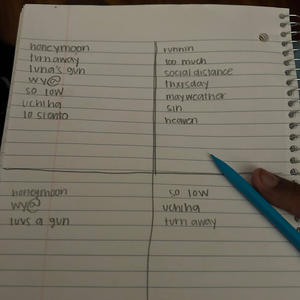 honeymoon
turn away
luna's gun
wy@
so low
uchiha
lo siento
runnin
too much
social distance
thursday
mayweather
sin
heaven
honeymoon
wy@
luvs a gun
so low
uchiha
turn away